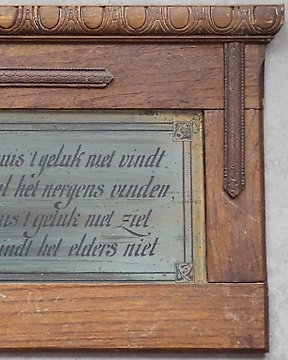 uis 't geluk niet vindt
l het nergens vinden
uis 't geluk niet ziet
indt het elders niet